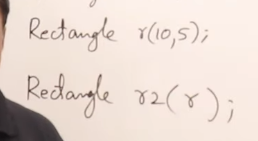 Rectangle r(10,5);
Rectangle r2(r);